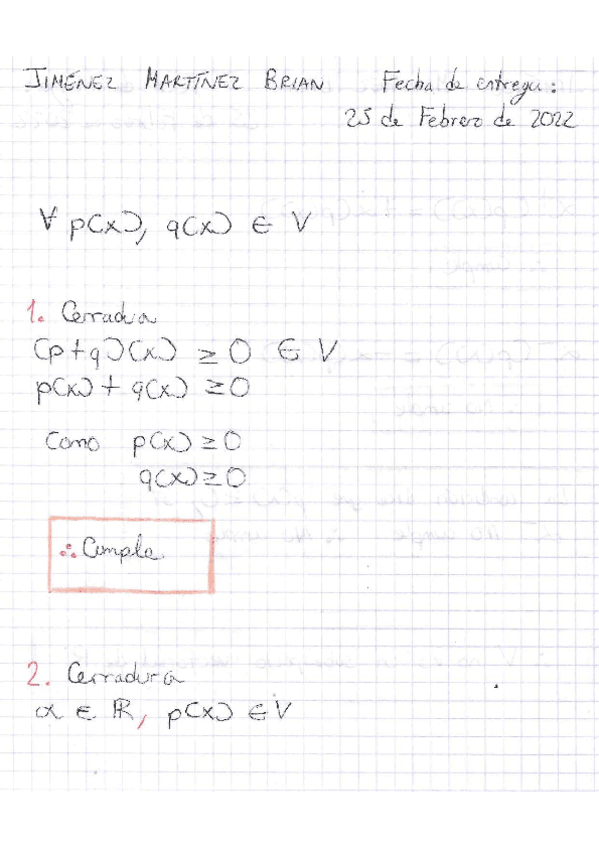 JIMÉNEZ MARTÍNEZ BRIAN Fecha de entrega:
25 de Febrero de 2022
∀ p(x), q(x) ∈ V
1. Cerradura
(p+q)(x) ≥ 0 ∈ V
p(x) + q(x) ≥ 0
Como p(x) ≥ 0
q(x) ≥ 0
∴ Cumple.
2. Cerradura
α ∈ ℝ, p(x) ∈ V